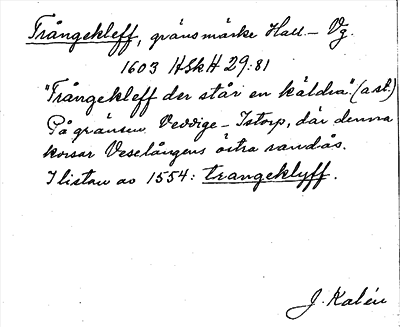 Trångekleff, gränsmärke Hall. – Vg.
1603 HSkH 29:81
"Trångekleff der står en käldra" (a st.)
På gränsen Veddige – Istorp, där denna
korsar Veselångens östra randås.
I listan av 1554: trangeklyff.
J. Kalén